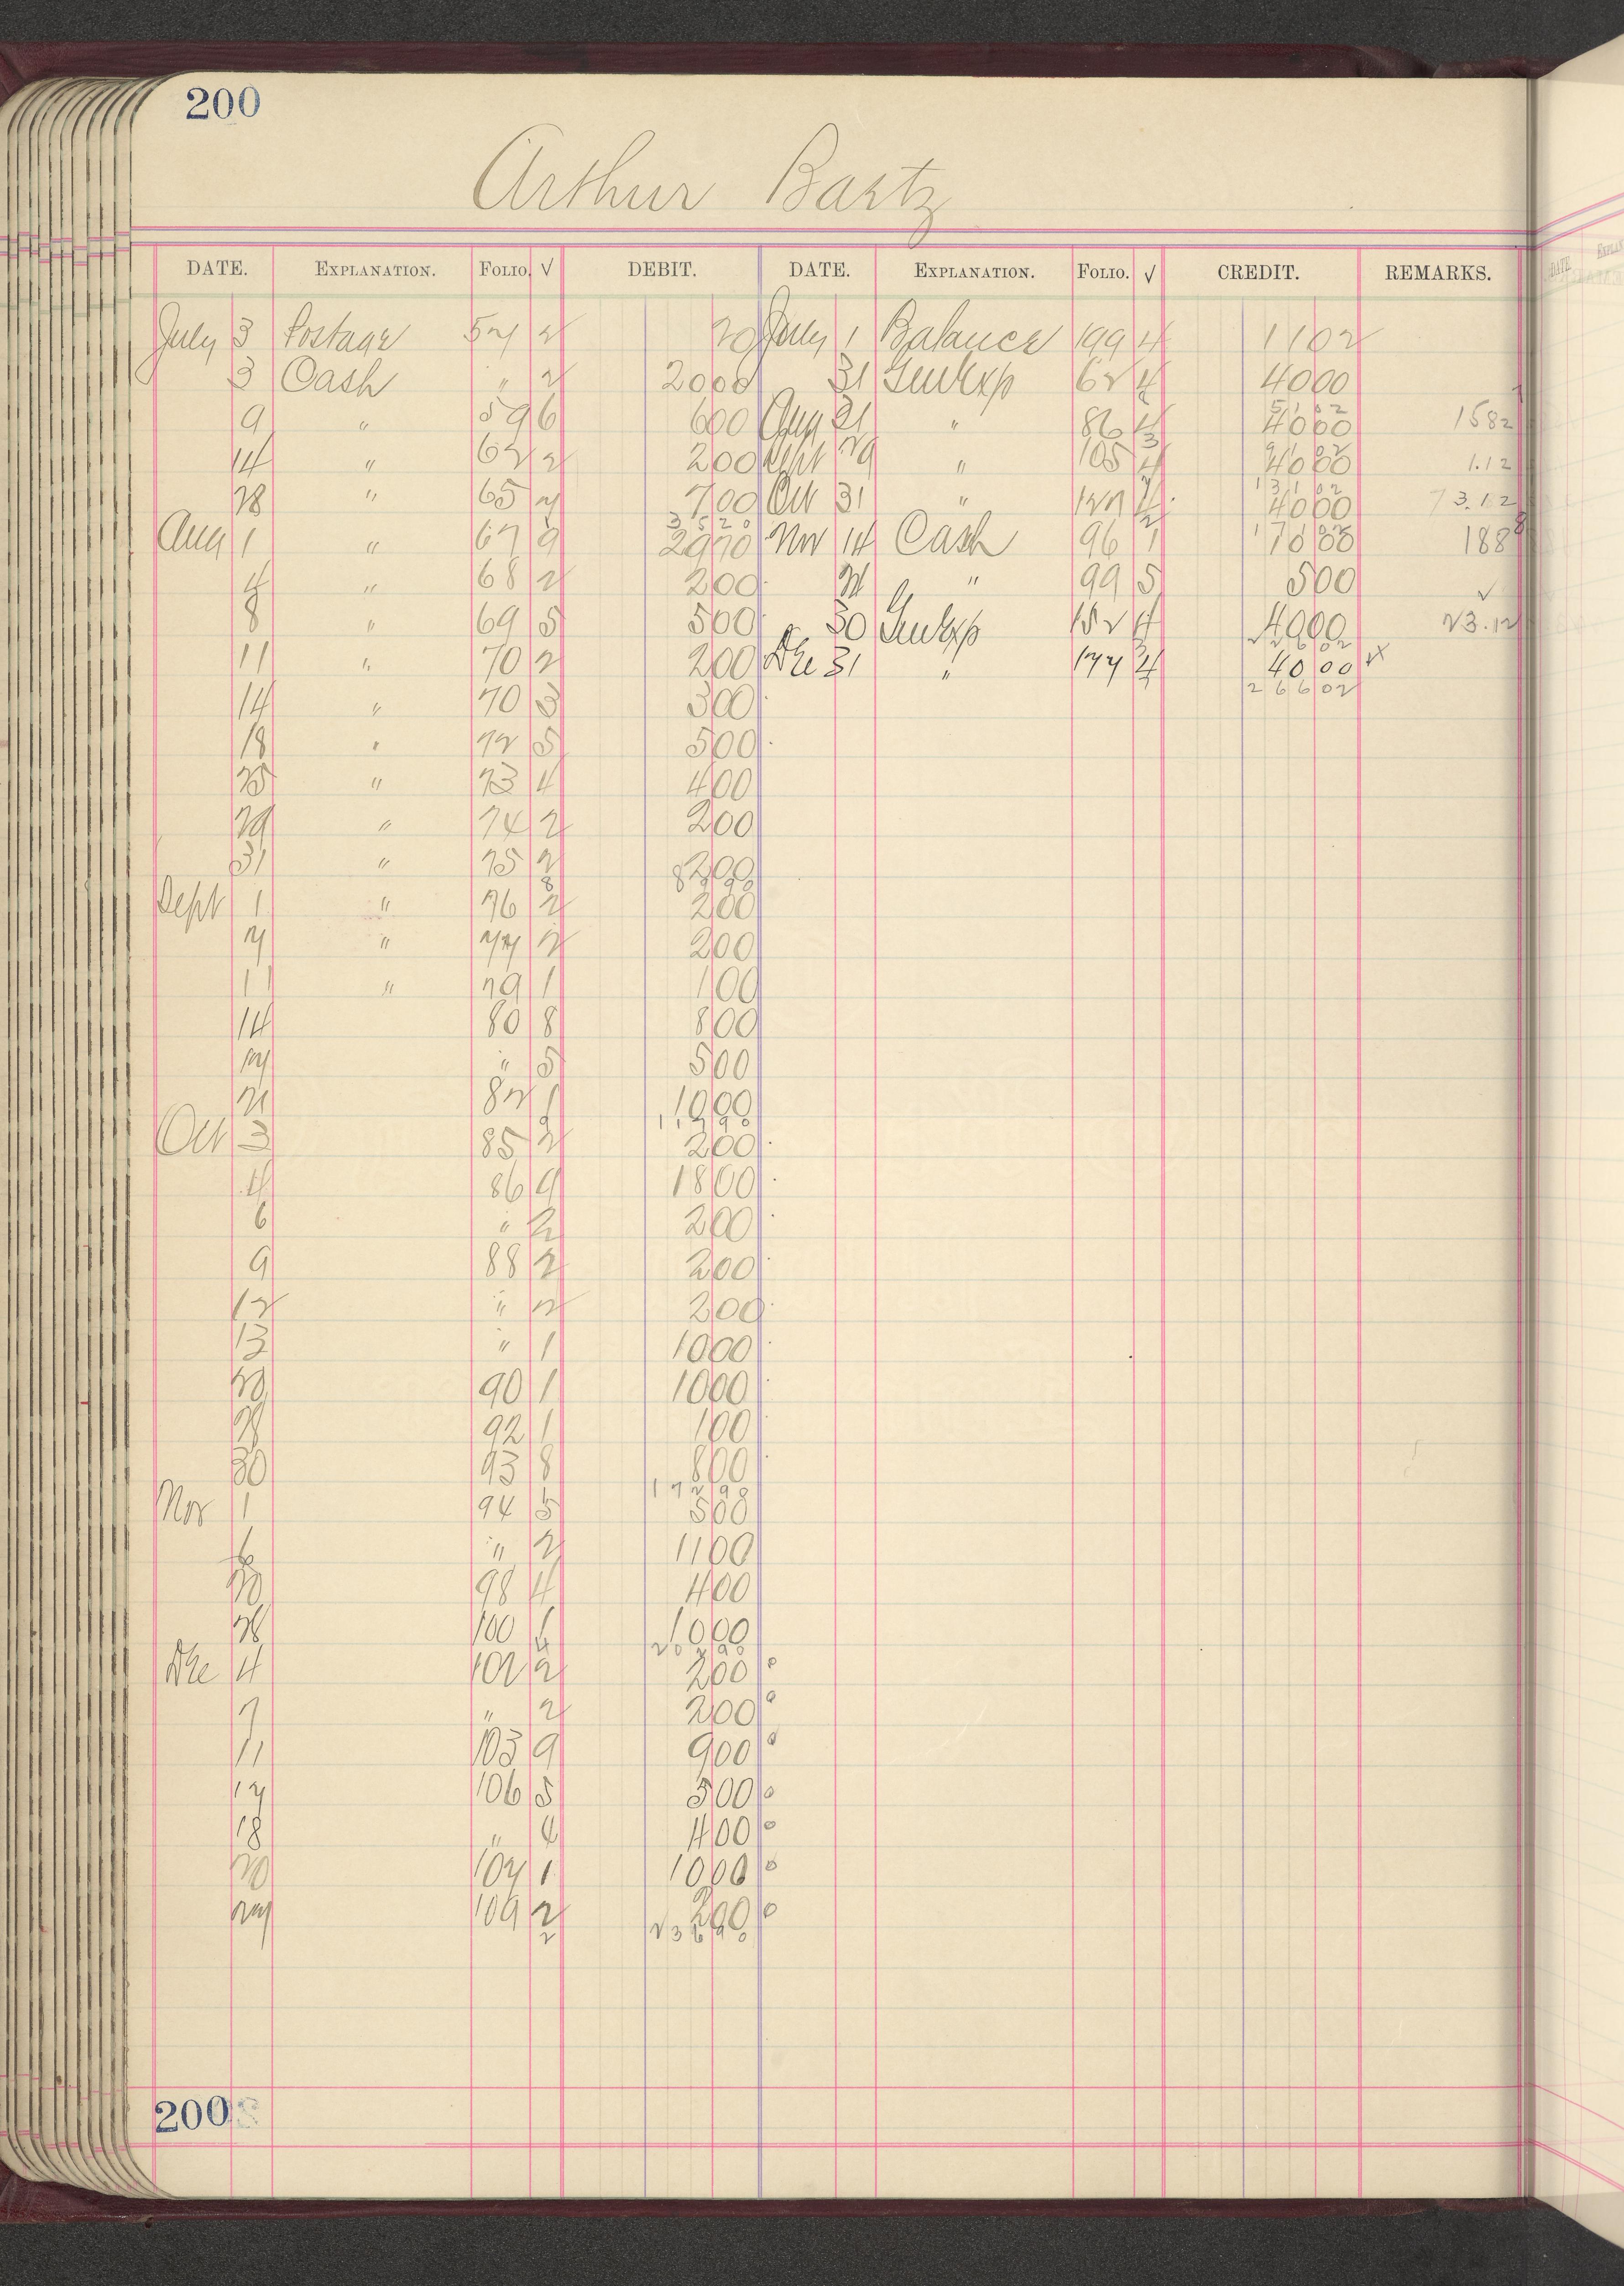 200
Arthur Bartz
DATE. EXPLANATION. FOLIO. √ DEBIT. DATE. EXPLANATION. FOLIO. √ CREDIT. REMARKS.
July 3 Postage 57 2 20 July 1 Balance 199 4 1102
3 Cash " 2 2000 31 Genl Exp 62 4 4000
5102
9 " 59 6 600 Aug 31 " 86 4 4000 1582
9102
14 " 62 2 200 Sept 29 " 105 4 4000 1.12
13102
28 " 65 7 700 Oct 31 " 127 4 4000 73.12
3520
Aug 1 " 67 9 2970 Nov 14 Cash 96 1 1000 188
4 " 68 2 200 21 " 99 5 500 √
8 " 69 5 500 30 Genl Exp 152 4 4000 23.12
22602
11 " 70 2 200 Dec 31 " 177 4 4000
26602
14 " 70 3 300
18 " 72 5 500
25 " 73 4 400
29 " 74 2 200
31 " 75 2 200
8990
Sept 1 " 76 2 200
7 " 77 2 200
11 " 79 1 100
14 80 8 800
17 " 5 500
21 82 1 1000
11790
Oct 3 85 2 200
4 86 9 1800
6 " 2 200
9 88 2 200
12 " 2 200
13 " 1 1000
20 90 1 1000
28 92 1 100
30 93 8 800
17290
Nov 1 94 5 500
6 " 2 1100
20 98 4 400
28 100 1 1000
20290
Dec 4 102 2 200
7 " 2 200
11 103 9 900
17 106 5 500
18 " 4 400
20 107 1 1000
27 109 2 200
23690
200